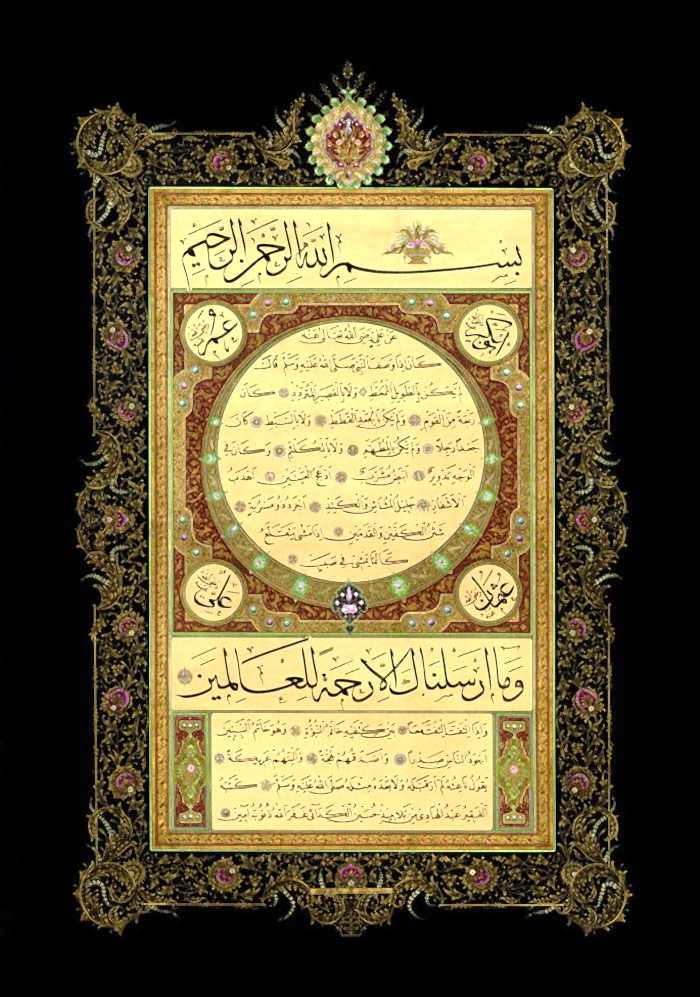 بسم الله الرحمن الرحيم
بكر
عمر
عن علي رضي الله تعالى عنه
كان اذا وصف النبي صلى الله عليه وسلم قال
لم يكن بالطويل الممغط ولا بالقصير المتردد وكان
ربعة من القوم ولم يكن بالجعد القطط ولا بالسبط كان
جعدا رجلا ولم يكن بالمطهم ولا بالمكلثم وكان في
الوجه تدوير ابيض مشرب ادعج العينين اهدب
الاشفار جليل المشاش والكتد اجرد ذو مسربة
شثن الكفين والقدمين اذا مشى يتقلع
كانما يمشي في صبب
عثمان
علي
وما ارسلناك الا رحمة للعالمين
واذا التفت التفت معا بين كتفيه خاتم النبوة وهو خاتم النبيين
اجود الناس صدرا واصدقهم لهجة والينهم عريكة
يقول ناعته لم ار قبله ولا بعده مثله صلى الله عليه وسلم كتبه
الفقير عبد الهادي من تلاميذ حسين غفر الله ذنوبه امين